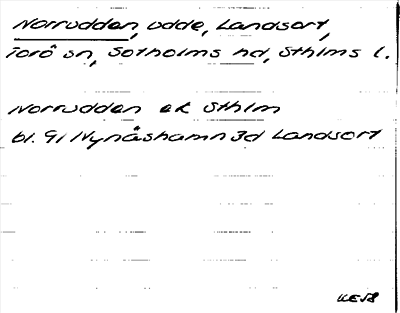 Norrudden, udde, Landsort,
Torö sn, Sotholms hd, Sthlms l.
Norrudden ek Sthlm
bl. 91 Nynäshamn 3d Landsort